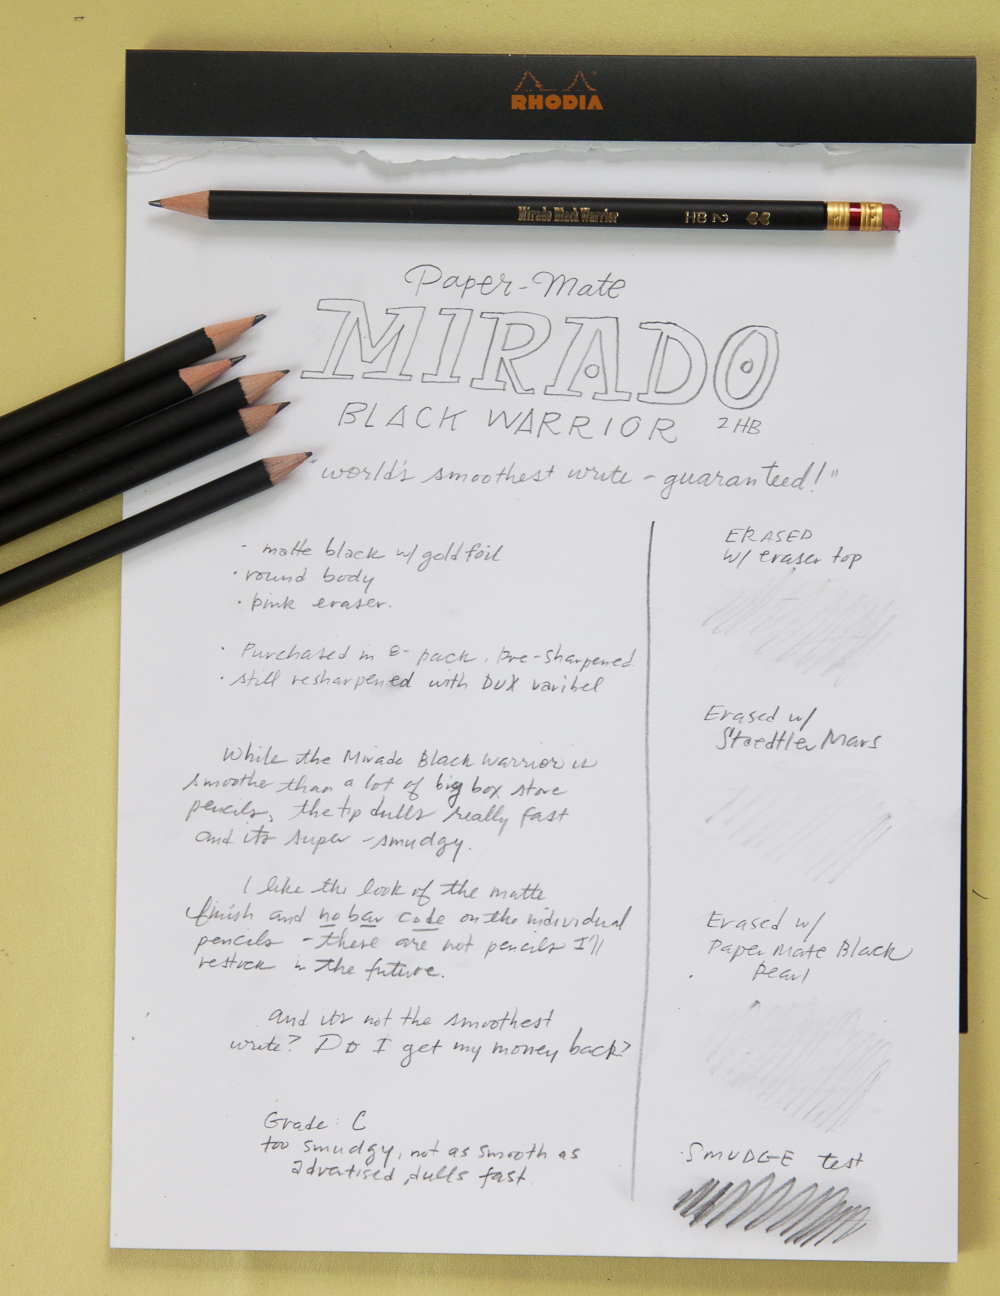 RHODIA
Mirado Black Warrior HB 2
Paper-Mate
MIRADO
BLACK WARRIOR 2HB
"world's smoothest write - guaranteed!"
- matte black w/ gold foil
• round body
• pink eraser.
• Purchased in 8-pack. Pre-sharpened.
• still resharpened with DUX varibel
While the Mirado Black Warrior is
smoother than a lot of big box store
pencils, the tip dulls really fast
and it's super-smudgy.
I like the look of the matte
finish and no bar code on the individual
pencils - these are not pencils I'll
restock in the future.
and it's not the smoothest
write? Do I get my money back?
Grade: C
too smudgy, not as smooth as
advertised, dulls fast.
ERASED
w/ eraser top
Erased w/
Staedtler Mars
Erased w/
Paper Mate Black
Pearl
SMUDGE test